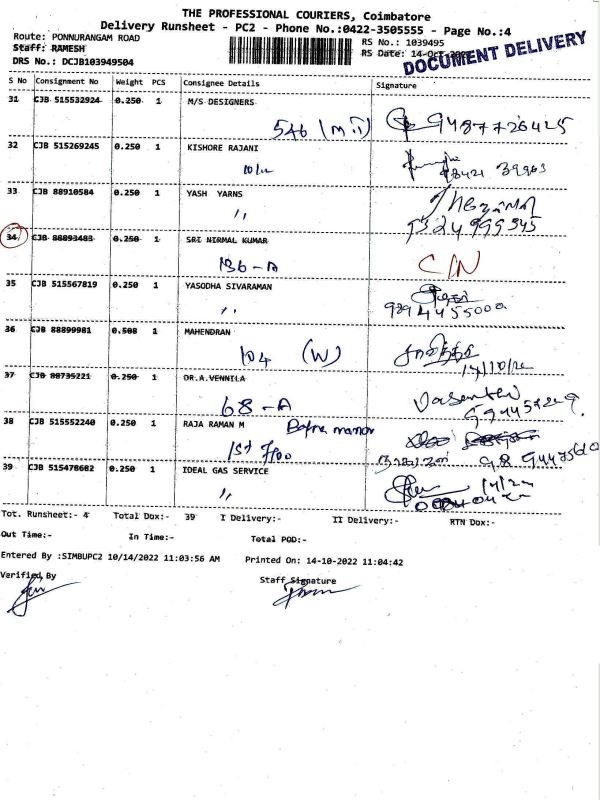 THE PROFESSIONAL COURIERS, Coimbatore
Delivery Runsheet - PC2 - Phone No.:0422-3505555 - Page No.:4
Route: PONNURANGAM ROAD
Staff: RAMESH
DRS No.: DCJB103949504
RS No.: 1039495
RS Date: 14-Oct-
DOCUMENT DELIVERY
S No Consignment No Weight PCS Consignee Details Signature
31 CJB 515532924 0.250 1 M/S DESIGNERS
546 9487726425
32 CJB 515269245 0.250 1 KISHORE RAJANI
10/12
33 CJB 88910584 0.250 1 YASH YARNS
,,
34 CJB 88893483 0.250 1 SRI NIRMAL KUMAR
136-A C/N
35 CJB 515567819 0.250 1 YASODHA SIVARAMAN
,,
36 CJB 88899981 0.508 1 MAHENDRAN
104 (W)
14/10/22
37 CJB 88735221 0.250 1 DR.A.VENNILA
68-A
38 CJB 515552240 0.250 1 RAJA RAMAN M
1st
39 CJB 515478682 0.250 1 IDEAL GAS SERVICE
,,
Tot. Runsheet:- 4 Total Dox:- 39 I Delivery:- II Delivery:- RTN Dox:-
Out Time:- In Time:- Total POD:-
Entered By :SIMBUPC2 10/14/2022 11:03:56 AM Printed On: 14-10-2022 11:04:42
Verified By Staff Signature